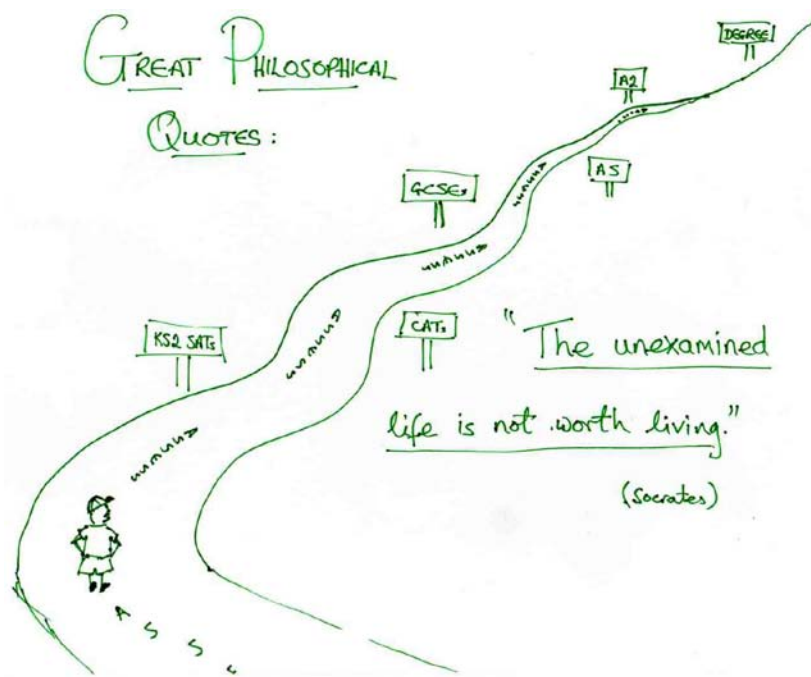 GREAT PHILOSOPHICAL
QUOTES:
DEGREE
A2
AS
GCSEs
KS2 SATs
CATs
"The unexamined
life is not worth living."
(Socrates)